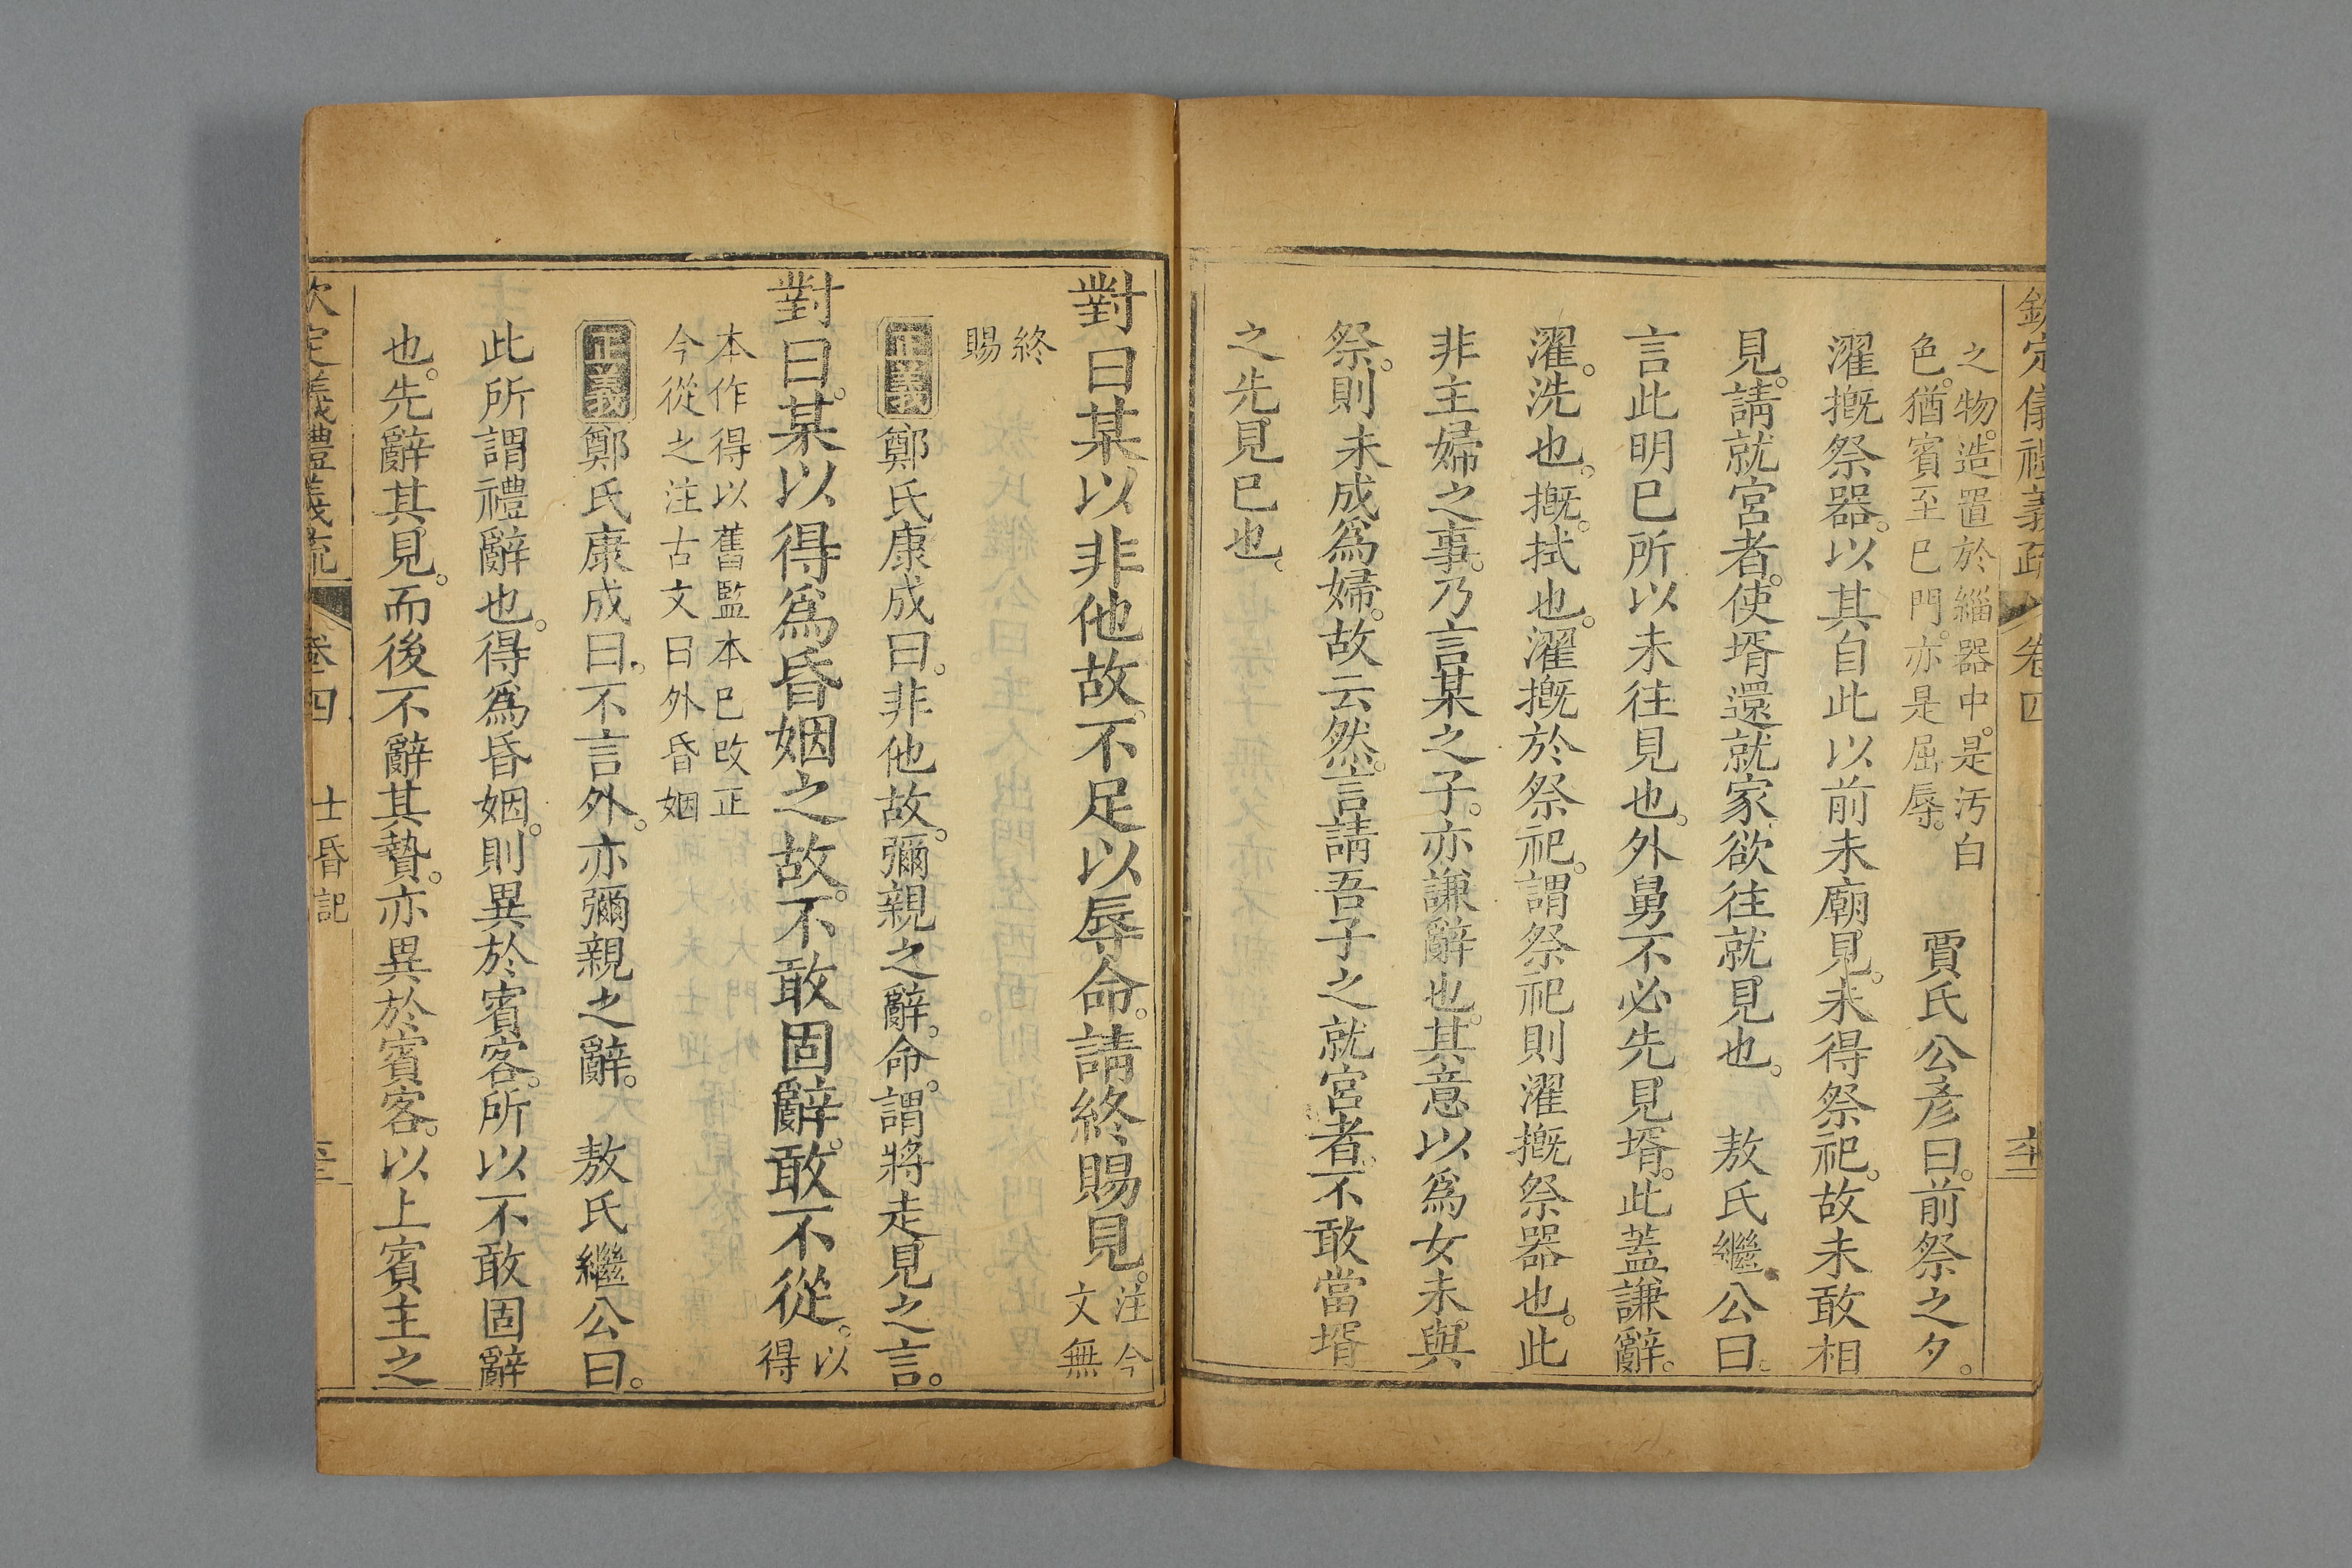 欽定儀禮義疏 卷四
之物。造置於緇器中。是汚白
色。猶賓至已門。亦是屈辱。
賈氏公彥曰。前祭之夕。
濯摡祭器。以其自此以前未廟見。未得祭祀。故未敢相
見。請就宮者。使壻還就家欲往就見也。 敖氏繼公曰。
言此明已所以未往見也。外舅不必先見壻。此蓋謙辭。
濯。洗也。摡。拭也。濯摡於祭祀。謂祭祀則濯摡祭器也。此
非主婦之事。乃言某之子。亦謙辭也。其意以爲女未與
祭。則未成爲婦。故云然。言請吾子之就宮者。不敢當壻
之先見已也。
對曰某以非他故。不足以辱命。請終賜見。
注今
文無
終
賜
正義鄭氏康成曰。非他故。彌親之辭。命。謂將走見之言。
對曰。某以得爲昏姻之故。不敢固辭。敢不從。
以
得
本作得以舊監本已改正
今從之注古文曰外昏姻
正義鄭氏康成曰。不言外。亦彌親之辭。 敖氏繼公曰。
此所謂禮辭也。得爲昏姻。則異於賓客。所以不敢固辭
也。先辭其見。而後不辭其贄。亦異於賓客。以上賓主之
欽定儀禮義疏 卷四 士昏記